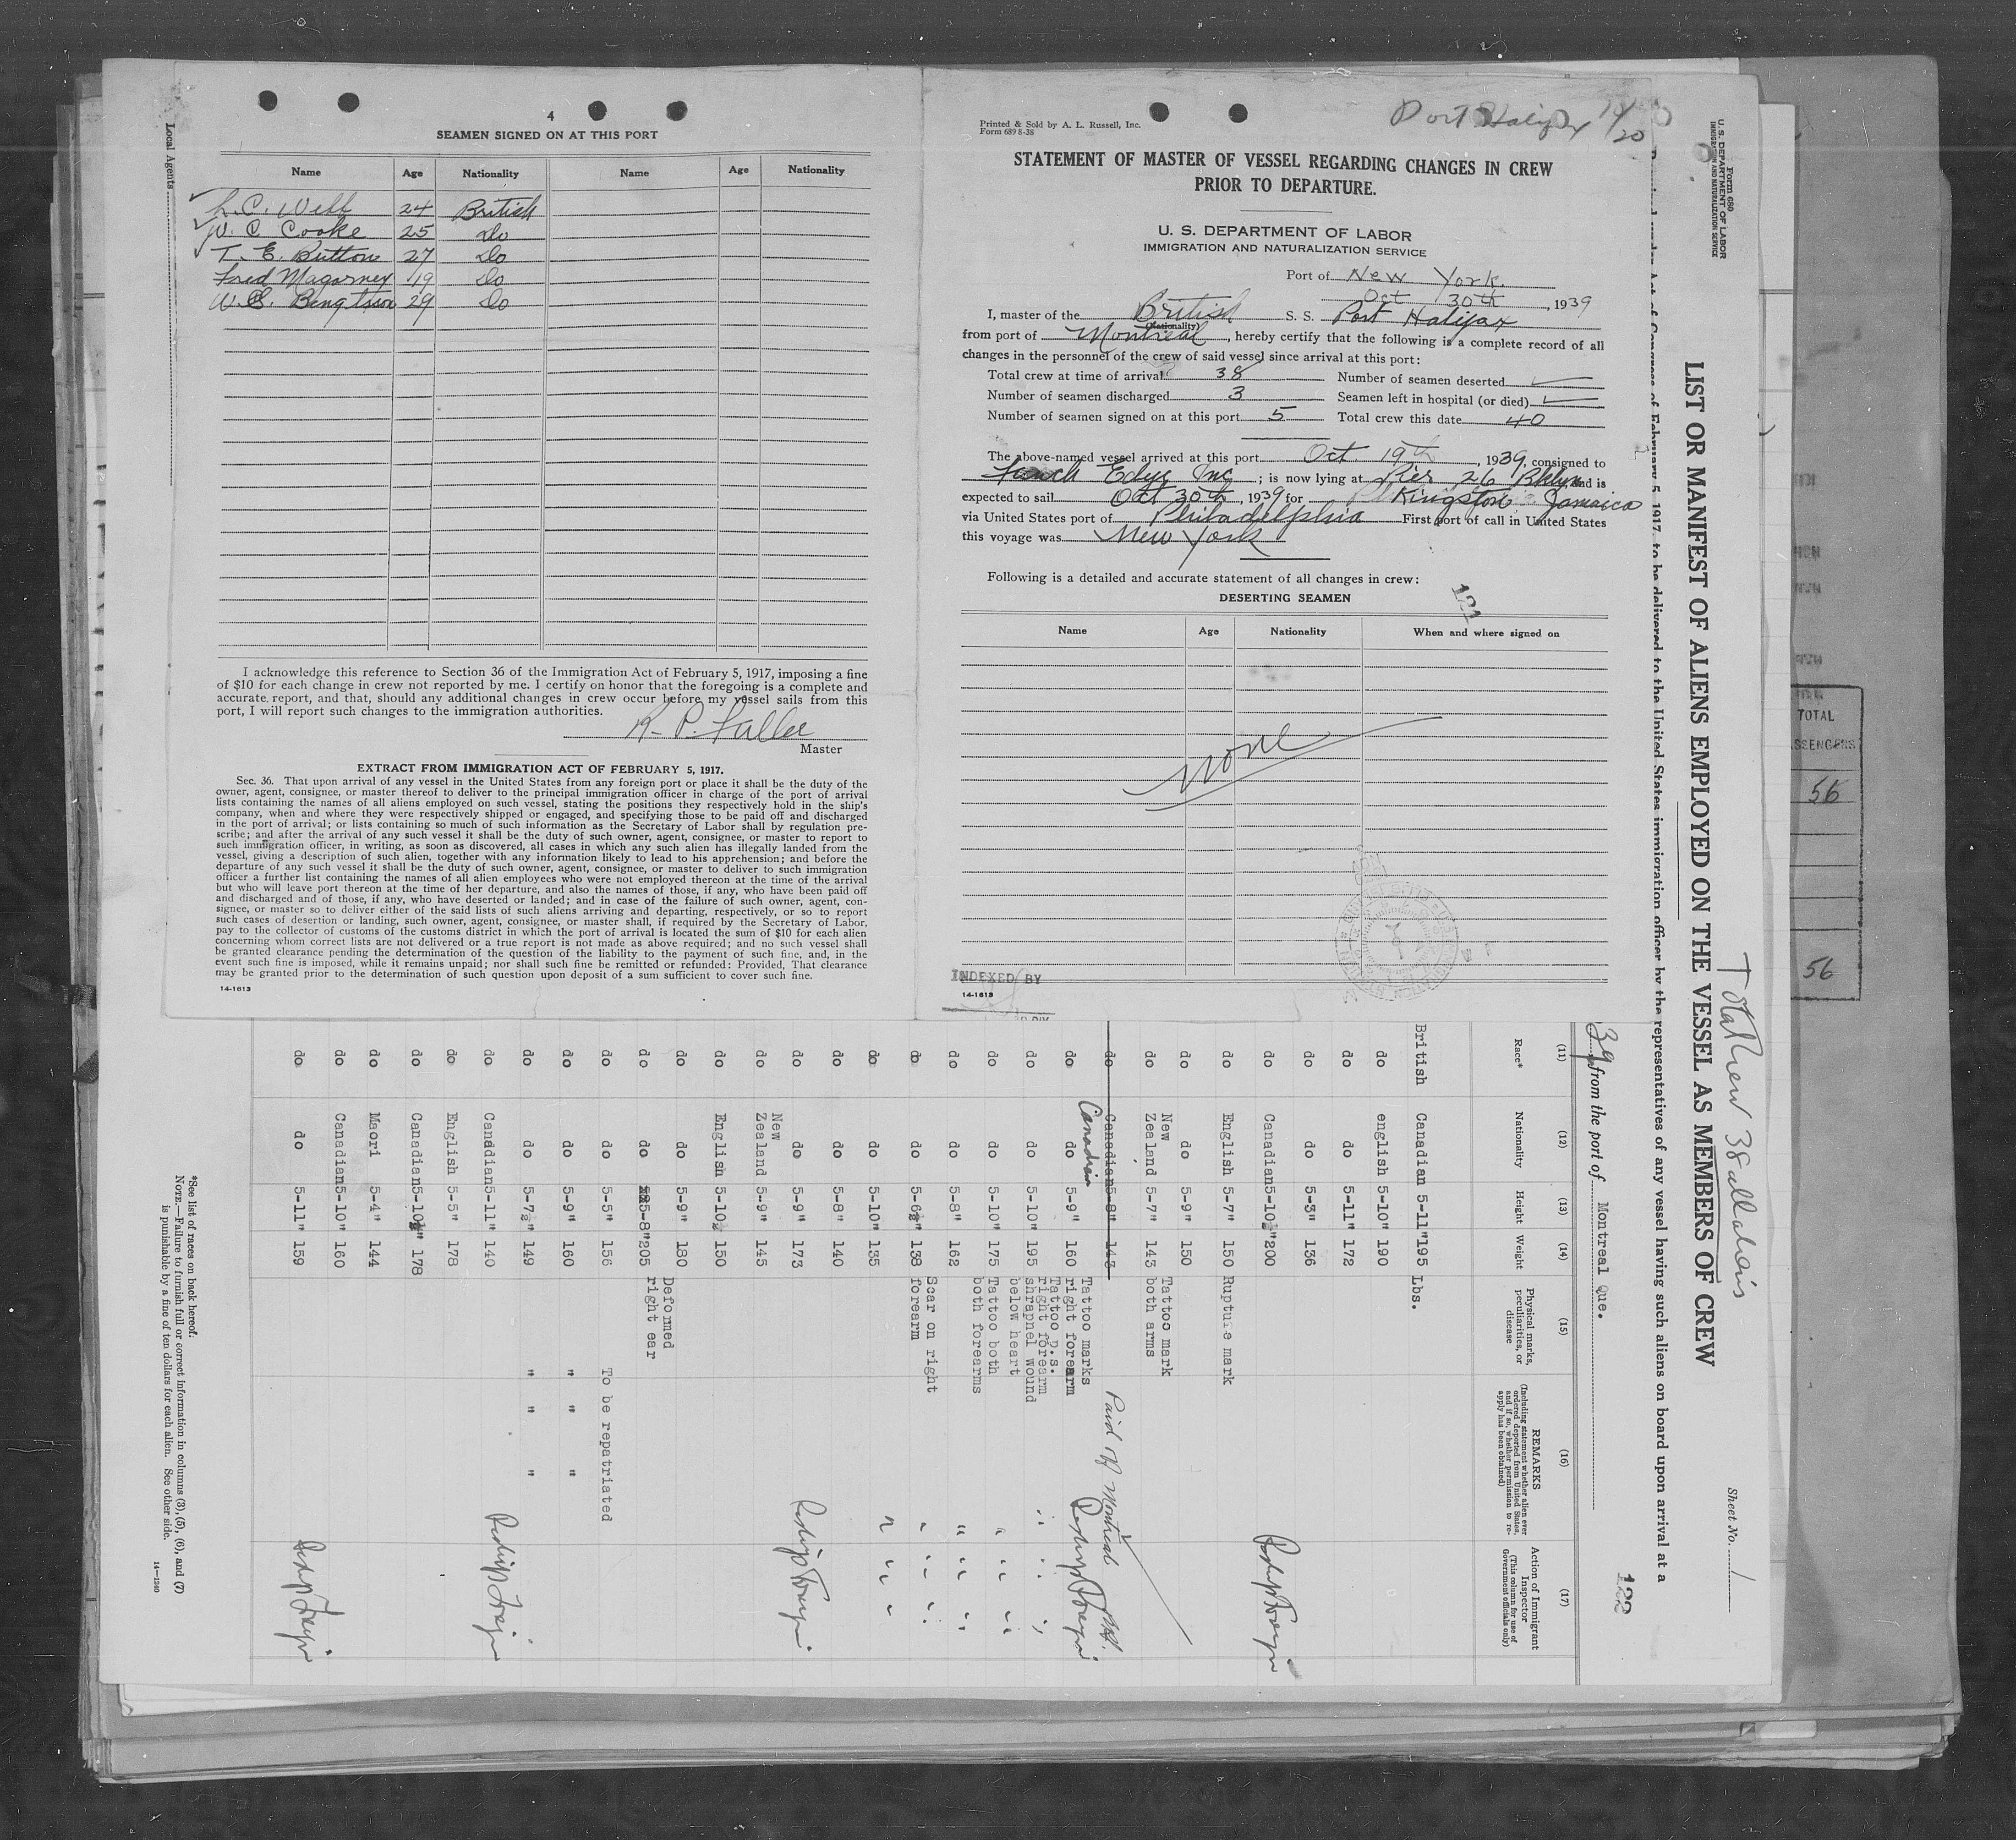 4
SEAMEN SIGNED ON AT THIS PORT
Local Agents
Name Age Nationality Name Age Nationality
L. C. Webb 24 British
W. C. Cooke 25 Do
T. E. Button 27 Do
Fred Magorney 19 Do
W. S. Bengtson 29 Do
I acknowledge this reference to Section 36 of the Immigration Act of February 5, 1917, imposing a fine
of $10 for each change in crew not reported by me. I certify on honor that the foregoing is a complete and
accurate report, and that, should any additional changes in crew occur before my vessel sails from this
port, I will report such changes to the immigration authorities.
Master
EXTRACT FROM IMMIGRATION ACT OF FEBRUARY 5, 1917.
Sec. 36. That upon arrival of any vessel in the United States from any foreign port or place it shall be the duty of the
owner, agent, consignee, or master thereof to deliver to the principal immigration officer in charge of the port of arrival
lists containing the names of all aliens employed on such vessel, stating the positions they respectively hold in the ship's
company, when and where they were respectively shipped or engaged, and specifying those to be paid off and discharged
in the port of arrival; or lists containing so much of such information as the Secretary of Labor shall by regulation pre-
scribe; and after the arrival of any such vessel it shall be the duty of such owner, agent, consignee, or master to report to
such immigration officer, in writing, as soon as discovered, all cases in which any such alien has illegally landed from the
vessel, giving a description of such alien, together with any information likely to lead to his apprehension; and before the
departure of any such vessel it shall be the duty of such owner, agent, consignee, or master to deliver to such immigration
officer a further list containing the names of all alien employees who were not employed thereon at the time of the arrival
but who will leave port thereon at the time of her departure, and also the names of those, if any, who have been paid off
and discharged and of those, if any, who have deserted or landed; and in case of the failure of such owner, agent, con-
signee, or master so to deliver either of the said lists of such aliens arriving and departing, respectively, or so to report
such cases of desertion or landing, such owner, agent, consignee, or master shall, if required by the Secretary of Labor,
pay to the collector of customs of the customs district in which the port of arrival is located the sum of $10 for each alien
concerning whom correct lists are not delivered or a true report is not made as above required; and no such vessel shall
be granted clearance pending the determination of the question of the liability to the payment of such fine, and, in the
event such fine is imposed, while it remains unpaid; nor shall such fine be remitted or refunded: Provided, That clearance
may be granted prior to the determination of such question upon deposit of a sum sufficient to cover such fine.
14-1613
Printed & Sold by A. L. Russell, Inc.
Form 689 8-38
Port Halifax 10/20
STATEMENT OF MASTER OF VESSEL REGARDING CHANGES IN CREW
PRIOR TO DEPARTURE.
U. S. DEPARTMENT OF LABOR
IMMIGRATION AND NATURALIZATION SERVICE
Port of New York.
Oct 30th, 1939
I, master of the British S. S. Port Halifax
(Nationality)
from port of Montreal, hereby certify that the following is a complete record of all
changes in the personnel of the crew of said vessel since arrival at this port:
Total crew at time of arrival 38 Number of seamen deserted
Number of seamen discharged 3 Seamen left in hospital (or died)
Number of seamen signed on at this port 5 Total crew this date 40
The above-named vessel arrived at this port Oct. 19th, 1939, consigned to
Edye Inc; is now lying at Pier 26 Bklyn and is
expected to sail Oct 30th, 1939 for Kingston Jamaica
via United States port of Philadelphia First port of call in United States
this voyage was New York
Following is a detailed and accurate statement of all changes in crew:
121
DESERTING SEAMEN
Name Age Nationality When and where signed on
None
INDEXED BY
14-1613
Form 680
U. S. DEPARTMENT OF LABOR
IMMIGRATION AND NATURALIZATION SERVICE
Sheet No. 1
LIST OR MANIFEST OF ALIENS EMPLOYED ON THE VESSEL AS MEMBERS OF CREW
of Congress of February 5, 1917, to be delivered to the United States immigration officer by the representatives of any vessel having such aliens on board upon arrival at a
122
39, from the port of Montreal Que.
(11) (12) (13) (14) (15) (16) (17)
Race* Nationality Height Weight Physical marks, peculiarities, or disease REMARKS (Including statement whether alien ever ordered deported from United States, and if so, whether permission to re-apply has been obtained) Action of Immigrant Inspector (This column for use of Government officials only)
British Canadian 5-11" 195 Lbs.
do english 5-10" 190
do do 5-11" 172
do do 5-3" 136
do Canadian 5-10½" 200
do English 5-7" 150 Rupture mark
do do 5-9" 150
do New Zealand 5-7" 143 Tattoo mark both arms
do Canadian 5-8" 143 Paid off Montreal
do Canadian do 5-9" 160 Tattoo marks right forearm
do do 5-10" 195 Tattoo D.s. right forearm shrapnel wound below heart
do do 5-10" 175 Tattoo both both forearms
do do 5-8" 162
do do 5-6½" 138 Scar on right forearm
do do 5-10" 135
do do 5-8" 140
do do 5-9" 173
do New Zealand 5-9" 145
do English 5-10½ 150
do do 5-9" 180
do do 5-8" 205 Deformed right ear
do do 5-5" 156 To be repatriated
do do 5-9" 160 " " "
do do 5-7½" 149 " " "
do Canadian 5-11" 140
do English 5-5" 178
do Canadian 5-10½" 178
do Maori 5-4" 144
do Canadian 5-10" 160
do do 5-11" 159
*See list of races on back hereof.
NOTE.—Failure to furnish full or correct information in columns (3), (5), (6), and (7)
is punishable by a fine of ten dollars for each alien. See other side.
14-1240
TOTAL
56
56